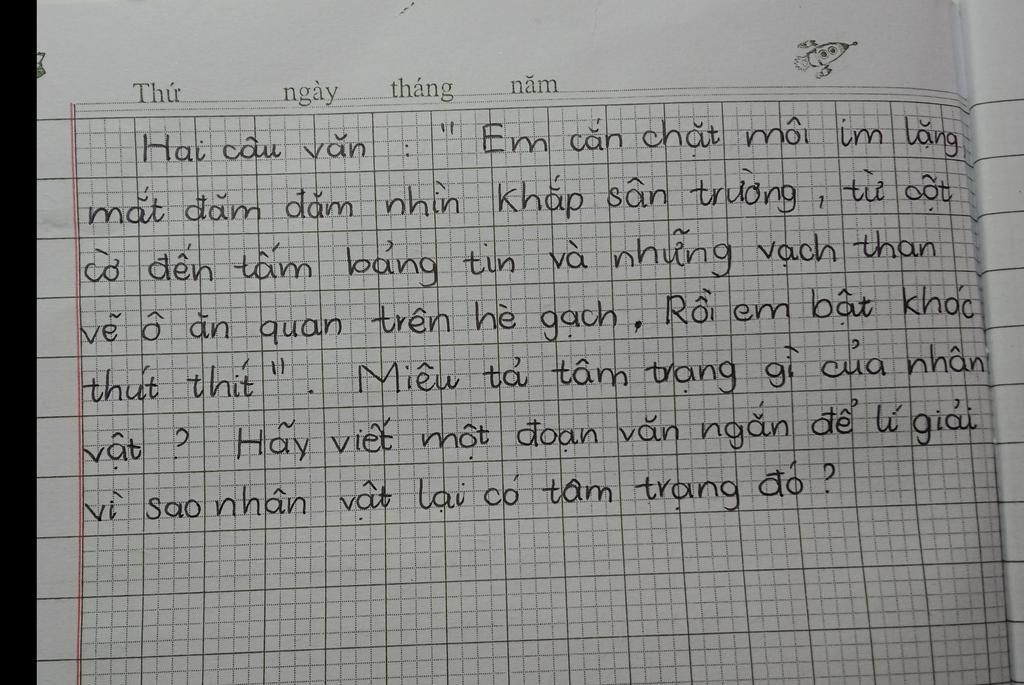 Thứ ngày tháng năm
Hai câu văn : " Em cắn chặt môi im lặng,
mắt đăm đăm nhìn khắp sân trường, từ cột
cờ đến tấm bảng tin và những vạch than
vẽ ô ăn quan trên hè gạch. Rồi em bật khóc
thút thít". Miêu tả tâm trạng gì của nhân
vật ? Hãy viết một đoạn văn ngắn để lí giải
vì sao nhân vật lại có tâm trạng đó ?